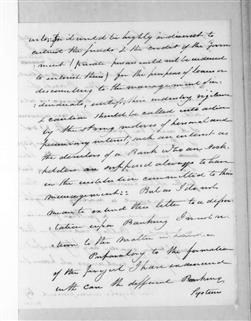 it would be highly indiscreet to
extend the funds & the credit of the Govern
ment (private persons would not be induced
to entrust theirs) for the purposes of loans or
discounting to the management of in-
dividuals, unless their industry vigilance
& caution should be called into action
by the strong motives of personal and
pecuniary interest, such an interest as
the directors of a Bank who are stock-
holders are supposed always to have
in the institution committed to their
management. But as I do not
mean to extend this letter to a disser-
tation upon Banking I must re-
turn to the Matter
Preparatory to the formation
of the project I have examined
with care the different Banking
System